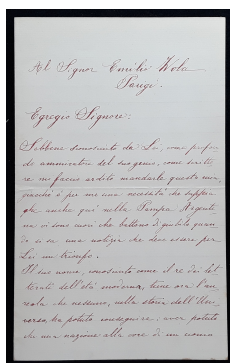 Al Signor Emilio Zola
Parigi.
Egregio Signore:
Sebbene sconosciuto da Lei, come profon-
do ammiratore del suo genio, come scritto-
re mi faccio ardito mandarle questa mia,
giacchè è per me una necessità che sappia
che anche qui nella Pampa Argenti-
na vi sono cuori che battono di giubilo quan-
do si sa una notizia che deve essere per
Lei un trionfo.
Il suo nome, conosciuto come il re dei let-
terati dell'età moderna, tiene ora l'au-
reola che nessuno, nella storia dell'Uni-
verso ha potuto conseguire, aver potuto
che una nazione alla voce di un uomo